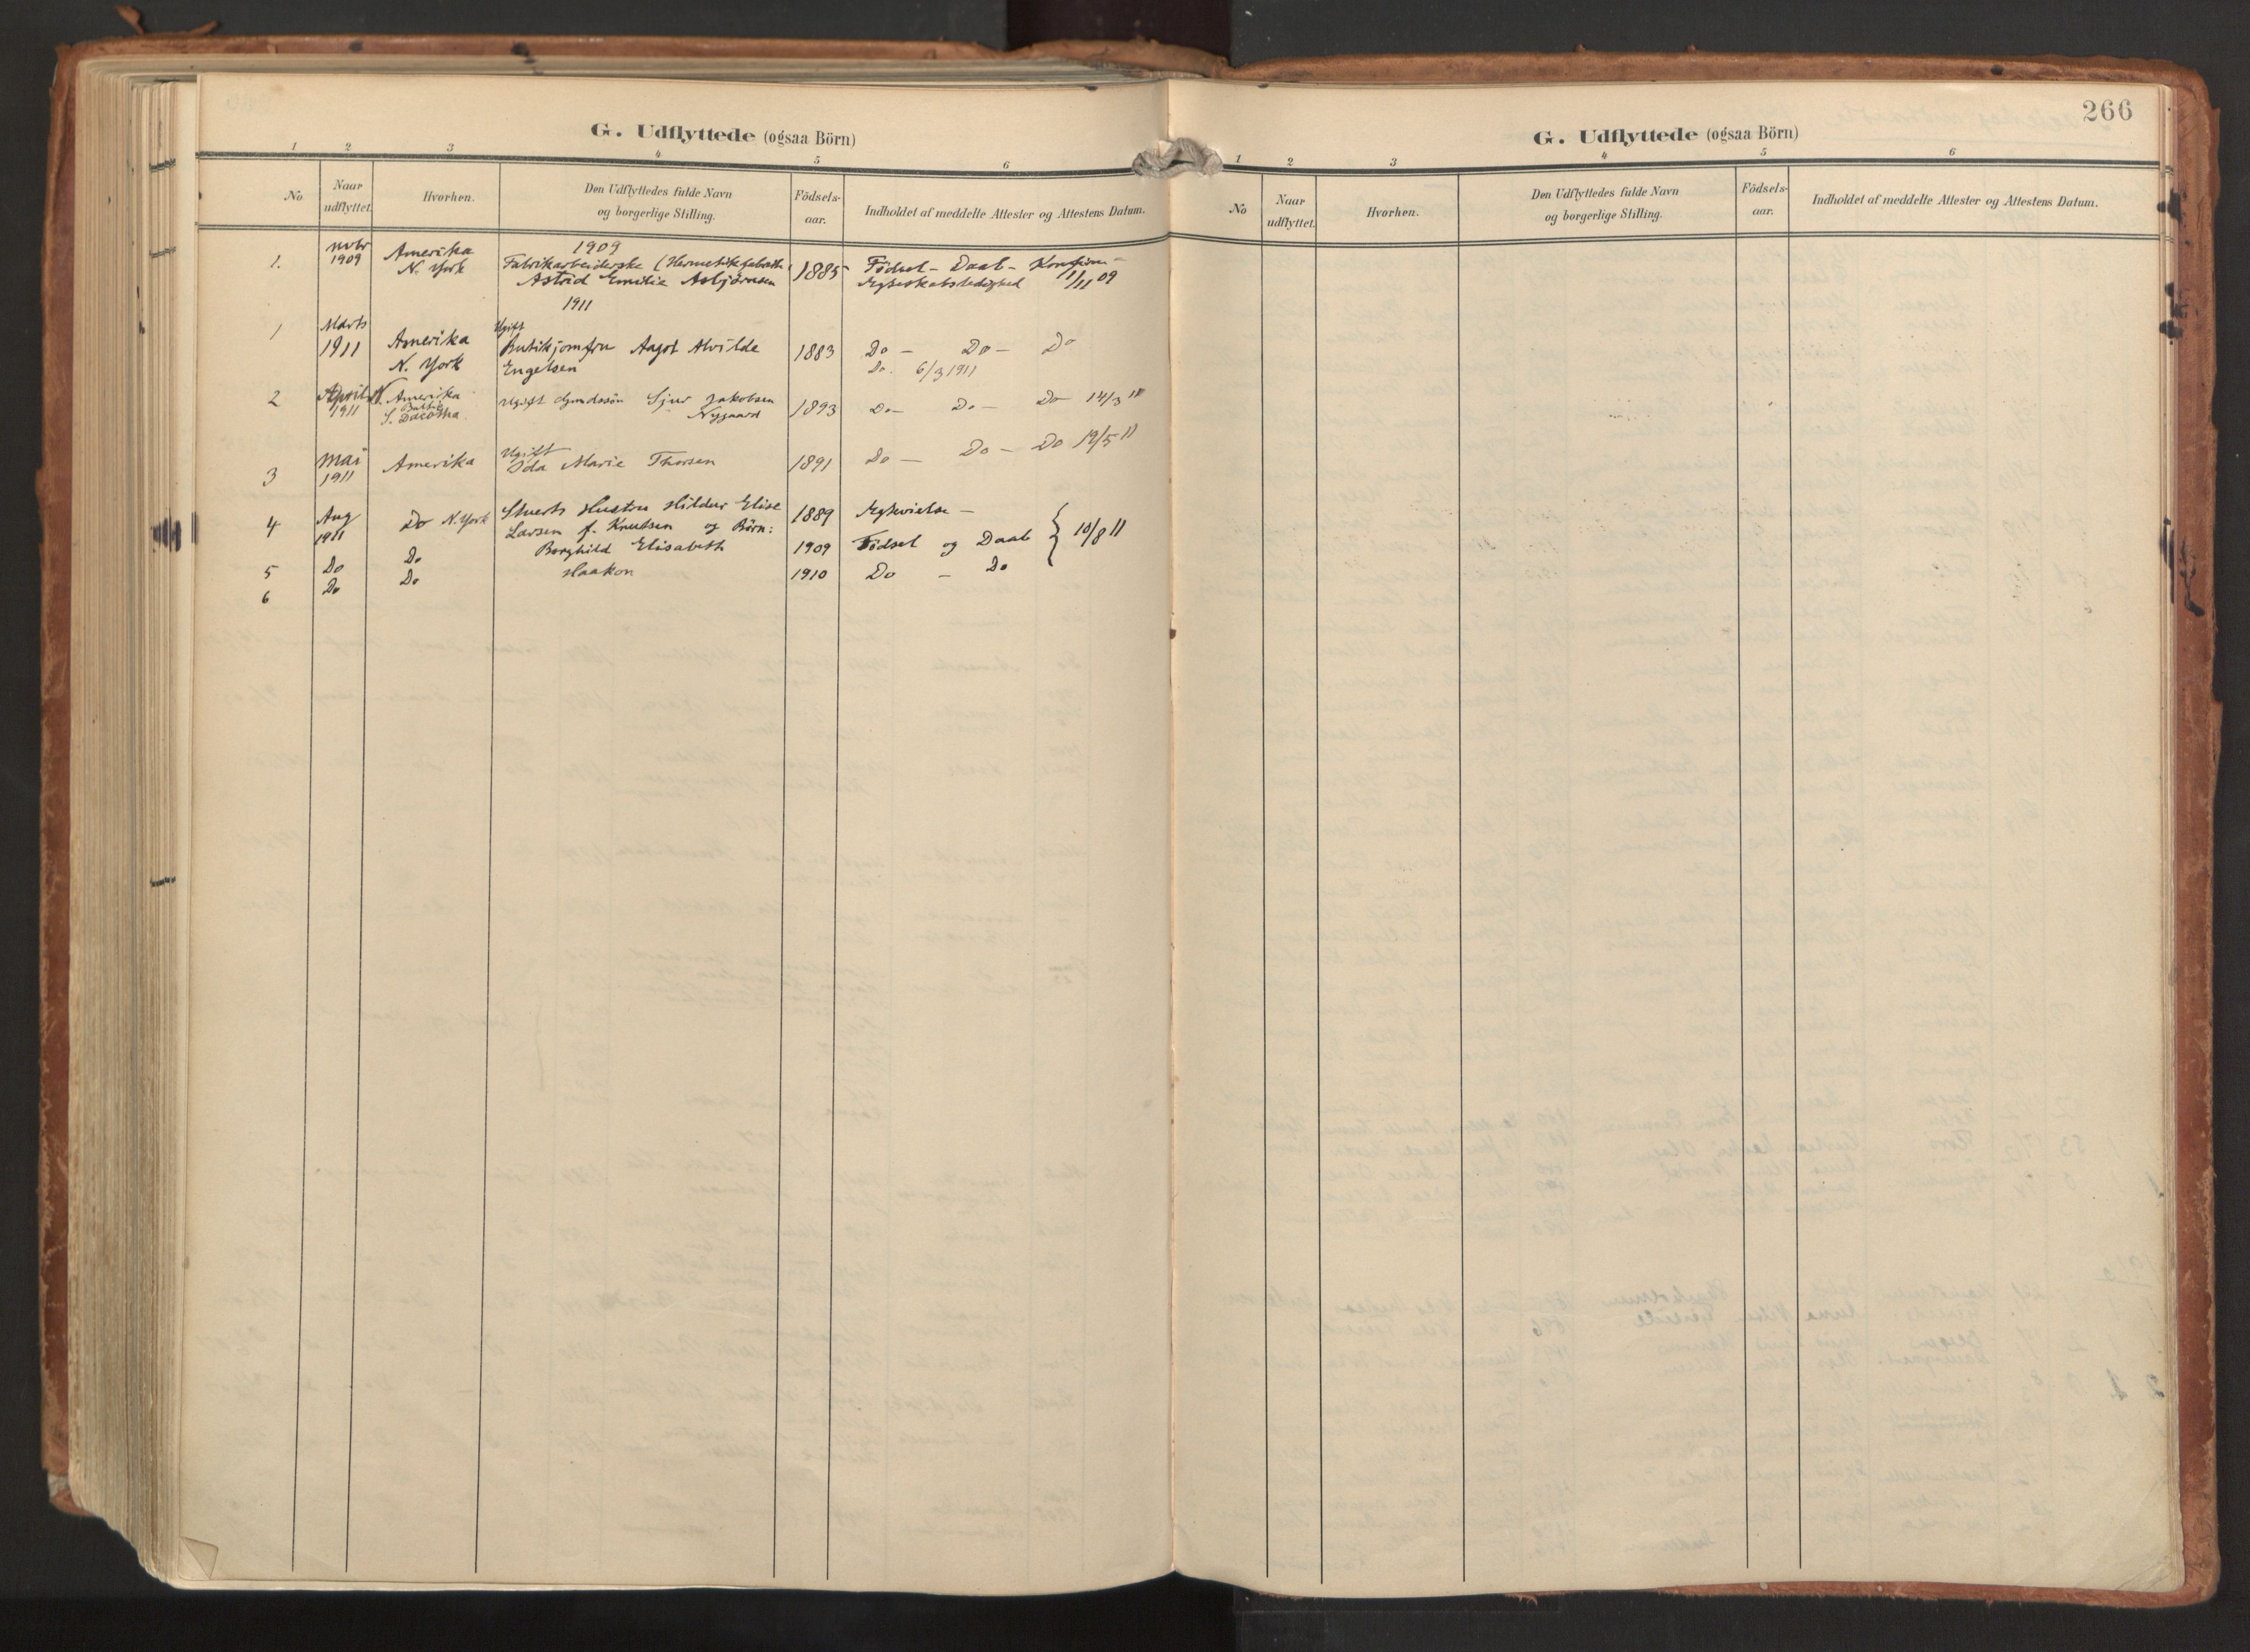 G. Udflyttede (ogsaa Börn)
1 2 3 4 5 6
No Naar udflyttet. Hvorhen. Den Udflyttedes fulde Navn og borgerlige Stilling. Födsels-aar. Indholdet af meddelte Attester og Attestens Datum.
1909
1. Novbr 1909 Amerika N. York Fabrikarbeiderske (Hermetikfabrik) Astrid Emilie Asbjörnsen 1885 Födsel - Daab - Konfirm - Ægteskabsledighed 1/11 09
1911
1 Marts 1911 Amerika N. York Ugift Butikjomfru Aagot Alvilde Engelsen 1883 Do - Do - Do Do. 6/3 1911
2 April 1911 N. Amerika S. Dacotha Ugift Sjur Jakobsen Nygaard 1893 Do - Do - Do 14/3 11
3 Mai 1911 Amerika Ugift Ida Marie Thorsen 1891 Do - Do - Do 19/5 11
4 Aug 1911 Do N. York Stuerts Hustru Hildur Elise Larsen f. Knutsen og Börn: 1889 Ægtevielse -
5 Do Do Borghild Elisabeth 1909 Födsel og Daab } 10/8 11
6 Do Do Haakon 1910 Do - Do
266
G. Udflyttede (ogsaa Börn)
1 2 3 4 5 6
No Naar udflyttet. Hvorhen. Den Udflyttedes fulde Navn og borgerlige Stilling. Födsels-aar. Indholdet af meddelte Attester og Attestens Datum.